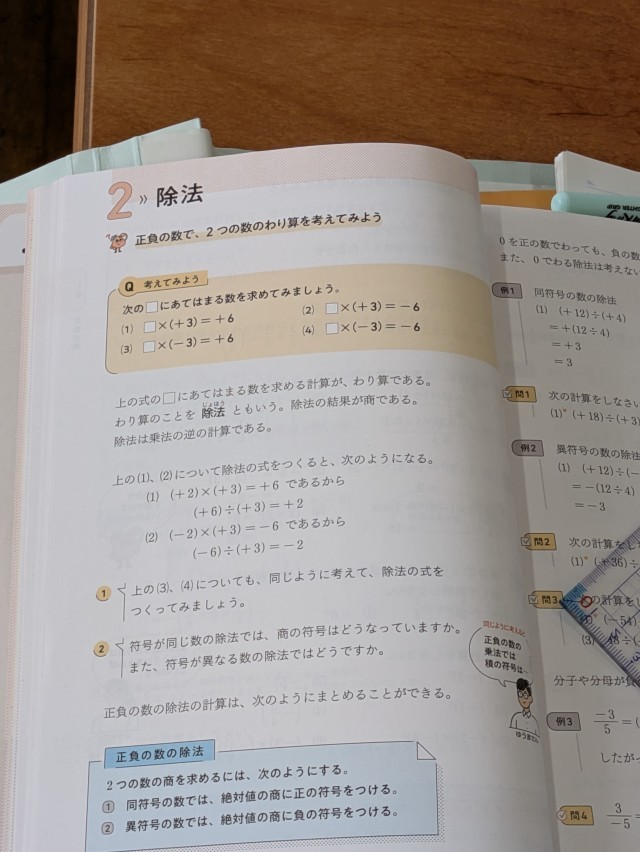 2 » 除法
正負の数で、2つの数のわり算を考えてみよう
Q 考えてみよう
次の□にあてはまる数を求めてみましょう。
(1) □×(+3)=+6
(2) □×(+3)=-6
(3) □×(-3)=+6
(4) □×(-3)=-6
上の式の□にあてはまる数を求める計算が、わり算である。
じょほう
わり算のことを 除法 ともいう。除法の結果が商である。
除法は乗法の逆の計算である。
上の(1)、(2)について除法の式をつくると、次のようになる。
(1) (+2)×(+3)=+6 であるから
(+6)÷(+3)=+2
(2) (-2)×(+3)=-6 であるから
(-6)÷(+3)=-2
1 上の(3)、(4)についても、同じように考えて、除法の式を
つくってみましょう。
2 符号が同じ数の除法では、商の符号はどうなっていますか。
また、符号が異なる数の除法ではどうですか。
同じように考えると
正負の数の
乗法では
積の符号は…
ゆうまさん
正負の数の除法の計算は、次のようにまとめることができる。
正負の数の除法
2つの数の商を求めるには、次のようにする。
1 同符号の数では、絶対値の商に正の符号をつける。
2 異符号の数では、絶対値の商に負の符号をつける。
0を正の数でわっても、負の数
また、0でわる除法は考えない
例1 同符号の数の除法
(1) (+12)÷(+4)
=+(12÷4)
=+3
=3
問1 次の計算をしなさい
(1) (+18)÷(+3)
例2 異符号の数の除法
(1) (+12)÷(-
=-(12÷4)
=-3
問2 次の計算を
(1) (+36)÷
問3 の計算を
(-54)
(3)
分子や分母が負
例3 -3/5=(
したがっ
問4 3/-5=